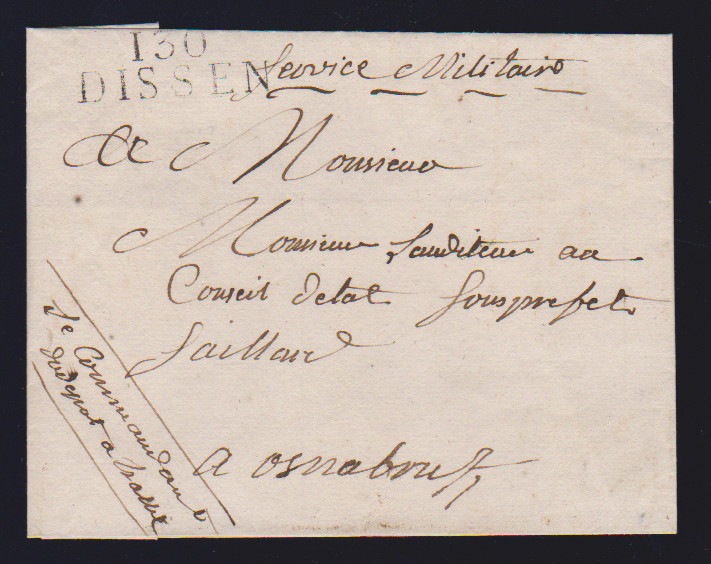 130
DISSEN
Service Militaire
A Monsieur
Monsieur Lauditeur au
Conseil detat Sousprefet
Gaillard
a osnabruk
Le Commandant
du depot a